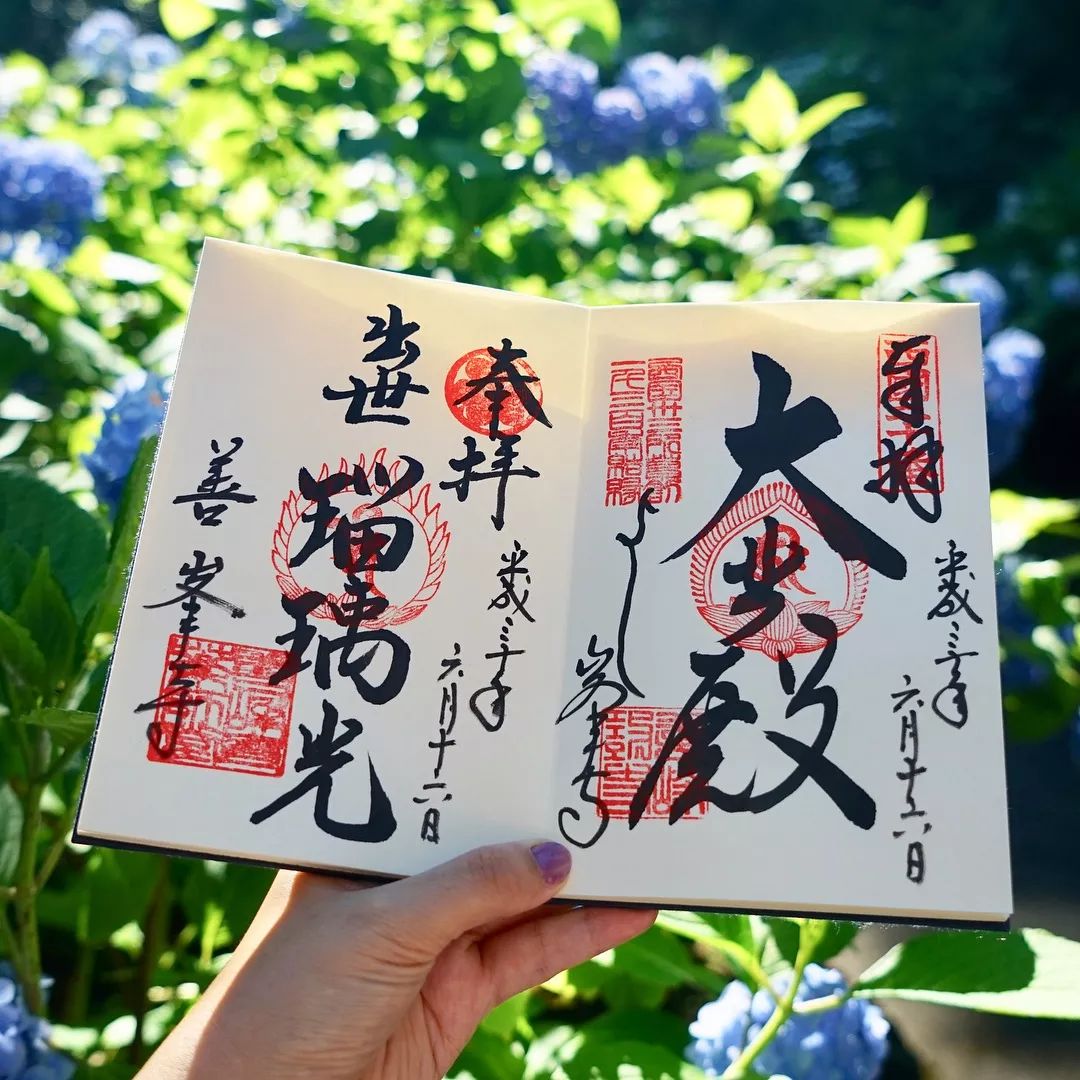 奉拝
平成三十年
六月十六日
大悲殿
よし峯寺
奉拝
平成三十年
六月十六日
出世
瑠璃光
善峯寺